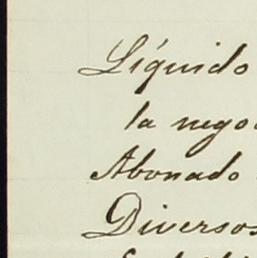 Líquido
la nego
Abonado
Diversos